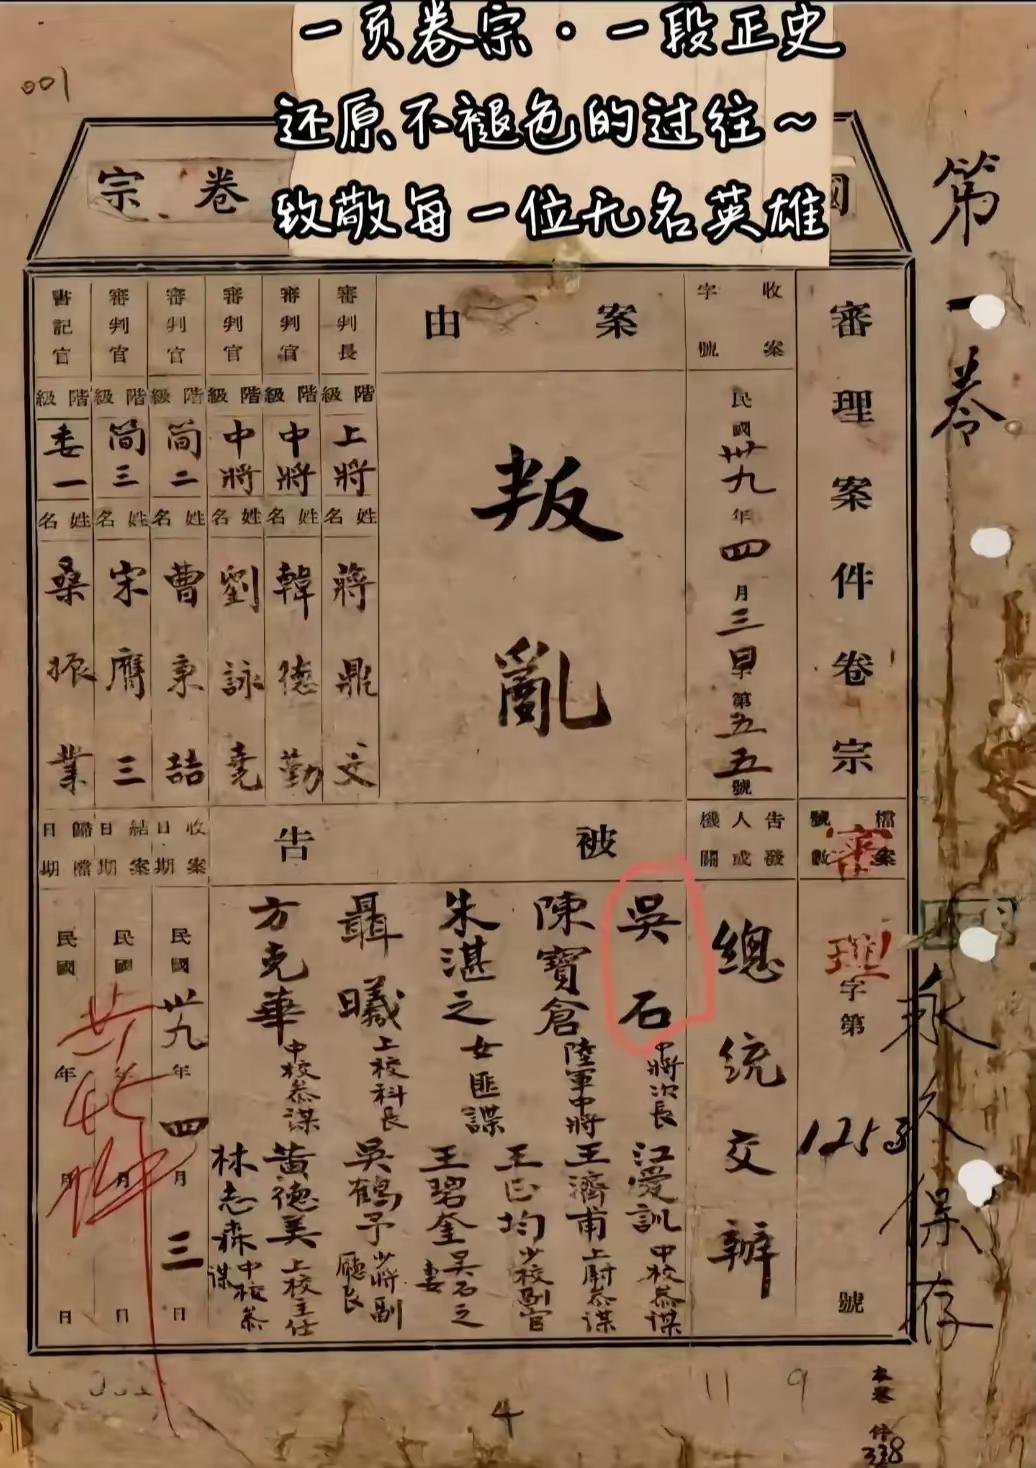 一页卷宗·一段正史
还原不褪色的过往~
致敬每一位无名英雄
001
宗卷
國
第一卷
審理案件卷宗
檔案號數
審理字第1253號
永久保存
收案字號
民國卅九年四月三日第五五號
告發人或機關
總統交辦
案由
叛亂
審判長
階級
上將
姓名
蔣鼎文
審判官
階級
中將
姓名
韓德勤
審判官
階級
中將
姓名
劉詠堯
審判官
階級
簡二
姓名
曹秉喆
審判官
階級
簡三
姓名
宋膺三
書記官
階級
委一
姓名
桑振業
被告
吳石 中將次長
陳寶倉 陸軍中將
朱湛之 女匪諜
聶曦 上校科長
方克華 中校參謀
江愛訓 中校參謀
王濟甫 上尉參謀
王正均 少校副官
王碧奎 吳石之妻
吳鶴予 少將副廳長
黃德美 上校主任
林志森 中校參謀
收案日期
民國卅九年四月三日
結案日期
民國 年 月 日
歸檔日期
民國 年 月 日
4
11
9
本卷
件
338